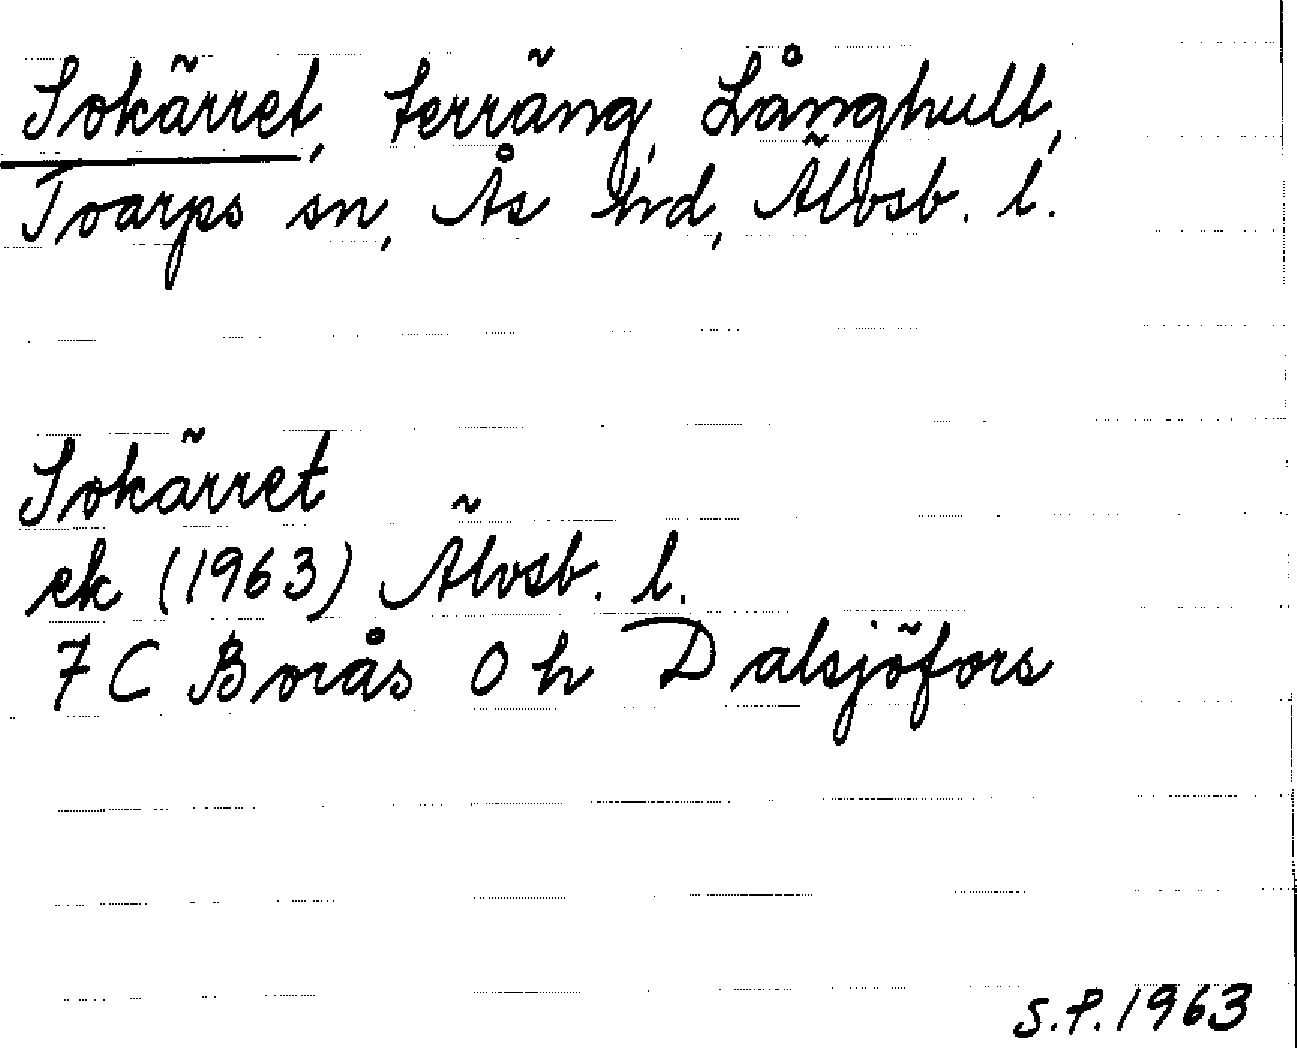 Sokärret, terräng, Långhult,
Toarps sn, Ås hrd, Älvsb. l.
Sokärret
ek (1963) Älvsb. l.
7 C Borås 0 h Dalsjöfors
S.P. 1963